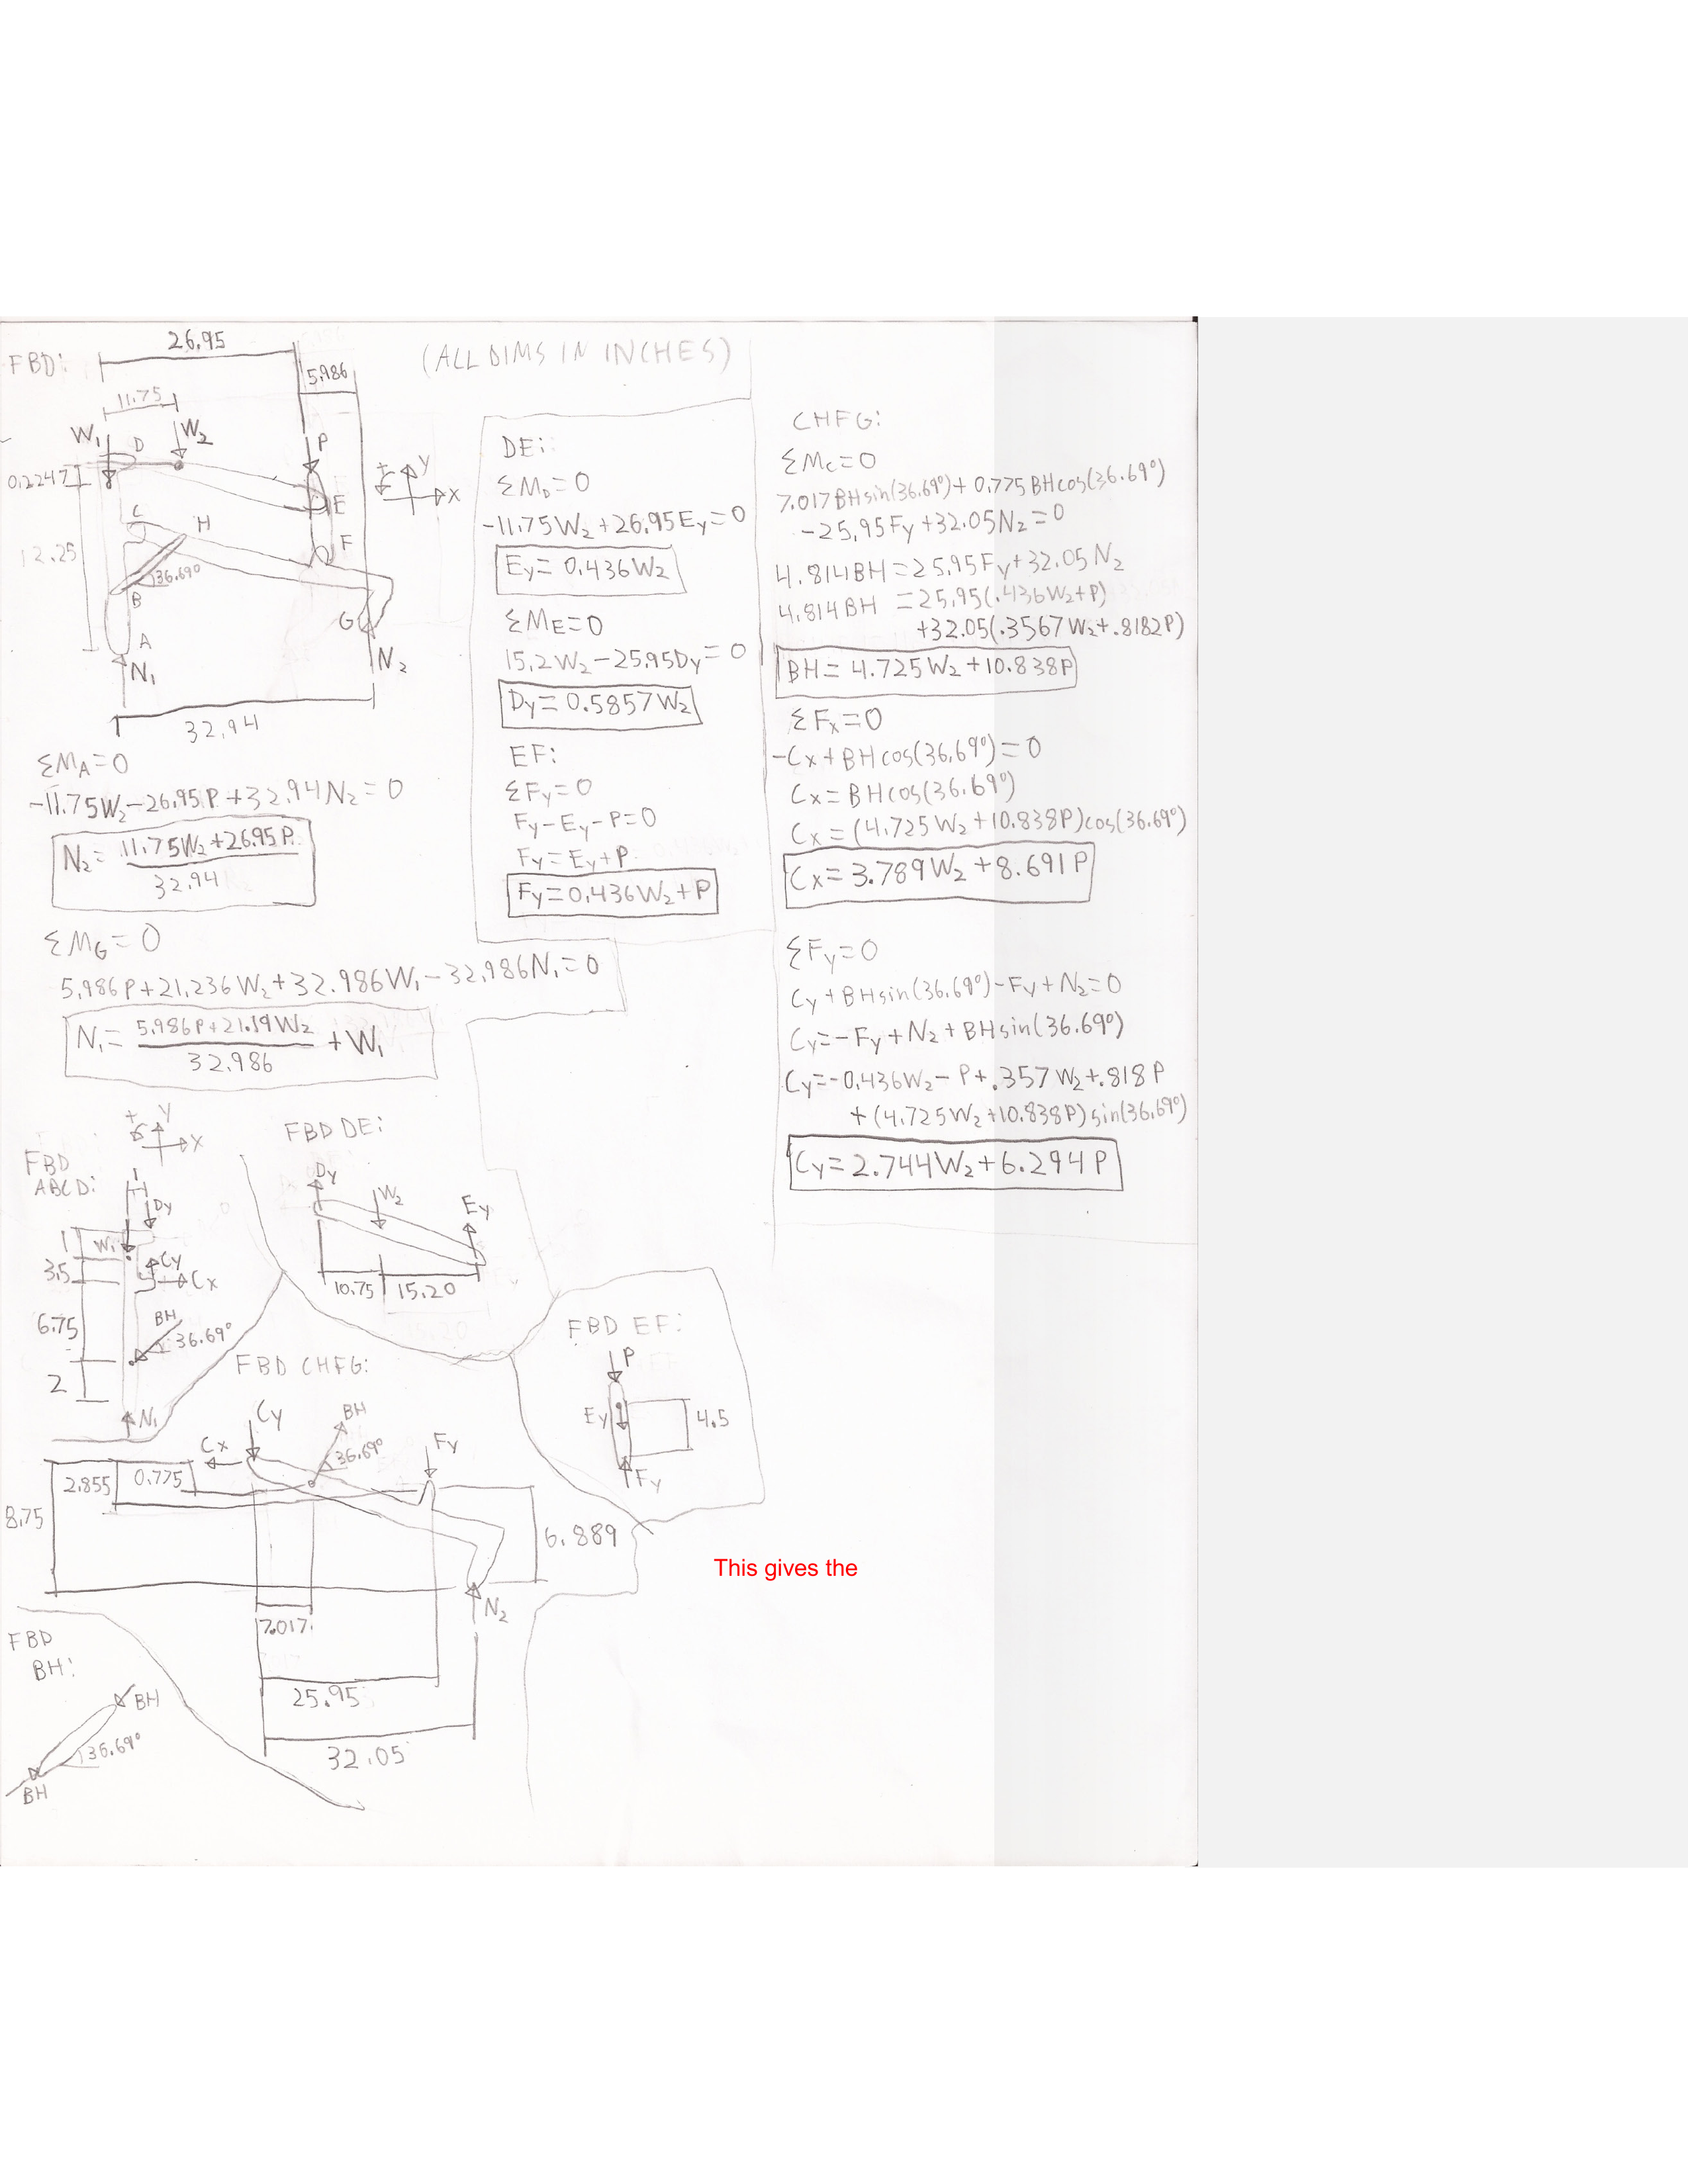 FBD:
26.95
(ALL DIMS IN INCHES)
5.986
11.75
W₁
D
W₂
P
0.2247
E
+
Y
X
C
H
F
12.25
36.69°
B
G
A
N₁
N₂
32.94
ΣM_A=0
-11.75W₂-26.95P+32.94N₂=0
N₂= 11.75W₂+26.95P
32.94
ΣM_G=0
5.986P+21.236W₂+32.986W₁-32.986N₁=0
N₁= 5.986P+21.19W₂ +W₁
32.986
DE:
ΣM_D=0
-11.75W₂+26.95E_y=0
E_y=0.436W₂
ΣM_E=0
15.2W₂-25.95D_y=0
D_y=0.5857W₂
EF:
ΣF_y=0
F_y-E_y-P=0
F_y=E_y+P
F_y=0.436W₂+P
CHFG:
ΣM_C=0
7.017BHsin(36.69°)+0.775BHcos(36.69°)
-25.95F_y+32.05N₂=0
4.814BH=25.95F_y+32.05N₂
4.814BH =25.95(.436W₂+P)
+32.05(.3567W₂+.8182P)
BH=4.725W₂+10.838P
ΣF_x=0
-C_x+BHcos(36.69°)=0
C_x=BHcos(36.69°)
C_x=(4.725W₂+10.838P)cos(36.69°)
C_x=3.789W₂+8.691P
ΣF_y=0
C_y+BHsin(36.69°)-F_y+N₂=0
C_y=-F_y+N₂+BHsin(36.69°)
C_y=-0.436W₂-P+.357W₂+.818P
+(4.725W₂+10.838P)sin(36.69°)
C_y=2.744W₂+6.294P
+
Y
X
FBD
ABCD:
1
D_y
1
W₁
C_y
3.5
C_x
6.75
BH
36.69°
2
N₁
FBD DE:
D_y
W₂
E_y
10.75
15.20
FBD EF:
P
E_y
4.5
F_y
FBD CHFG:
C_y
BH
C_x
36.69°
F_y
2.855
0.775
8.75
6.889
N₂
7.017
25.95
32.05
This gives the
FBD
BH:
BH
36.69°
BH